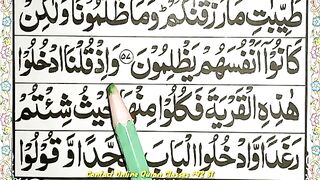 طَيِّبٰتِ مَا رَزَقْنٰكُمْ ؕ وَمَا ظَلَمُوْنَا وَلٰكِنْ
كَانُوْۤا اَنْفُسَهُمْ يَظْلِمُوْنَ ﴿۵۷﴾ وَاِذْ قُلْنَا ادْخُلُوْا
هٰذِهِ الْقَرْيَةَ فَكُلُوْا مِنْهَا حَيْثُ شِئْتُمْ
رَغَدًا وَّادْخُلُوا الْبَابَ سُجَّدًا وَّقُوْلُوْا
Contact Online Quran Classes +92 31